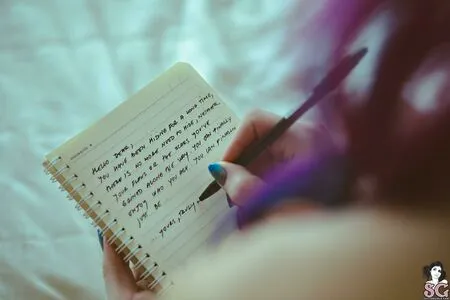 HELLO DEAR,
YOU HAVE BEEN HIDING FOR A LONG TIME,
THERE IS NO MORE NEED TO HIDE, NEITHER
YOUR FLAWS OR THE SCARS YOU'VE
GAINED ALONG THE WAY. YOU CAN FINALLY
ENJOY WHO YOU ARE YOU CAN FINALLY
JUST BE.
... YOURS, TRULY,
SG